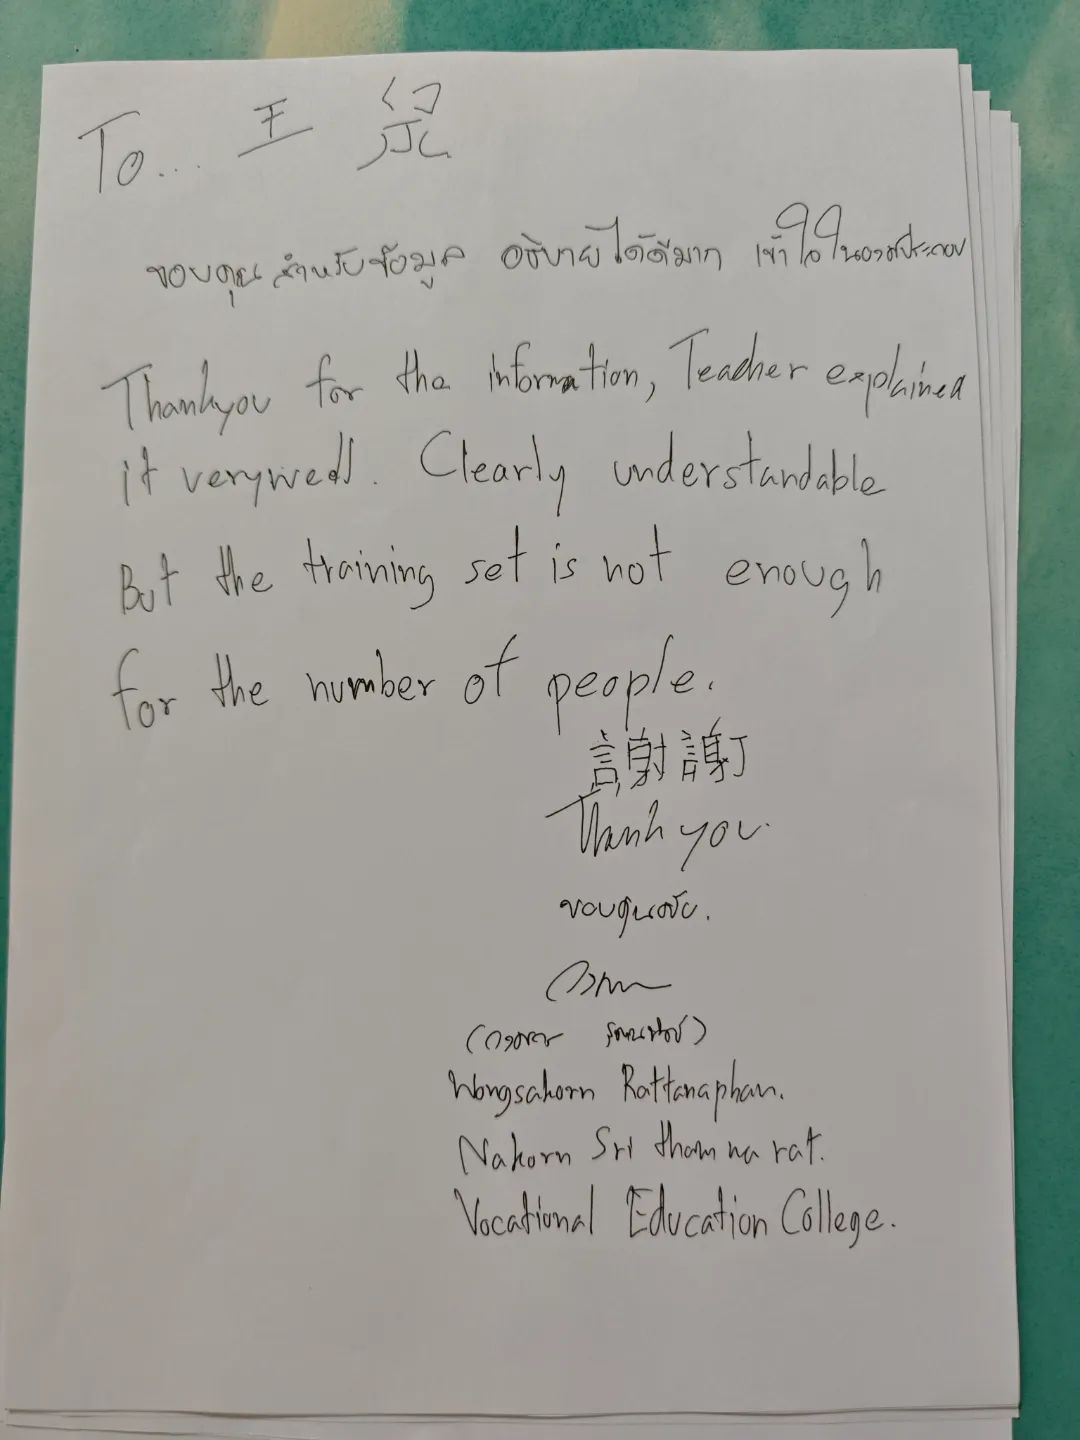 To... 王
ขอบคุณสำหรับข้อมูล อธิบายได้ดีมาก เข้าใจในองค์ประกอบ
Thankyou for the information, Teacher explained
it verywell. Clearly understandable
But the training set is not enough
for the number of people.
謝謝
Thank you.
ขอบคุณครับ.
Wongsakorn Rattanaphan.
Nakorn Sri tham na rat.
Vocational Education College.